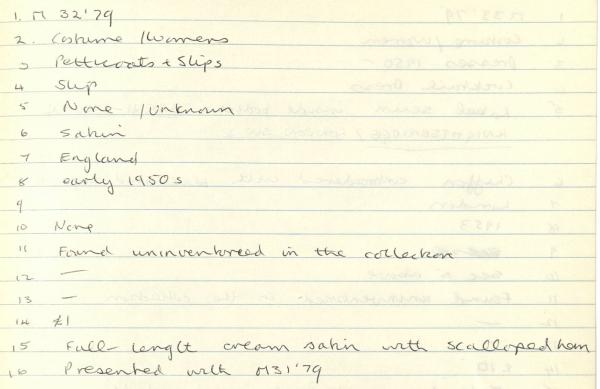 1. M 32'79
2. Costume / Womens
3 Petticoats + Slips
4 Slip
5 None / Unknown
6 Satin
7 England
8 early 1950s
9
10 None
11 Found uninventoried in the collection
12 —
13 —
14 £1
15 Full-length cream satin with scalloped hem
16 Presented with M31'79